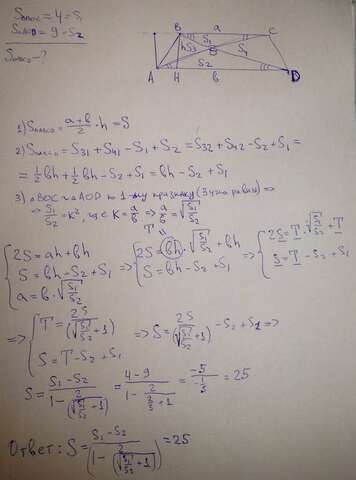 S_BOC = 4 = S₁
S_AOD = 9 = S₂
S_ABCD - ?
B a C
S₁
h S₃ O S₄
S₂
A H b D
1) S_ABCD = (a+b)/2 · h = S
2) S_ABCD = S₃₁ + S₄₁ - S₁ + S₂ = S₃₂ + S₄₂ - S₂ + S₁ =
= 1/2 bh + 1/2 bh - S₂ + S₁ = bh - S₂ + S₁
3) △BOC ∾ △AOD по 1-му признаку (3 угла равны) ⇒
⇒ S₁/S₂ = k², где k = a/b ⇒ a/b = √(S₁/S₂)
{ 2S = ah + bh
S = bh - S₂ + S₁
a = b · √(S₁/S₂)
⇒ { 2S = bh · √(S₁/S₂) + bh
S = bh - S₂ + S₁
T
⇒ { 2S = T · √(S₁/S₂) + T
S = T - S₂ + S₁
⇒ { T = 2S/(√(S₁/S₂) + 1)
S = T - S₂ + S₁
⇒ S = 2S/(√(S₁/S₂) + 1) - S₂ + S₁ ⇒
S = (S₁ - S₂)/(1 - 2/(√(S₁/S₂) + 1)) = (4 - 9)/(1 - 2/(2/3 + 1)) = -5/(-1/5) = 25
Ответ: S = (S₁ - S₂)/(1 - 2/(√(S₁/S₂) + 1)) = 25